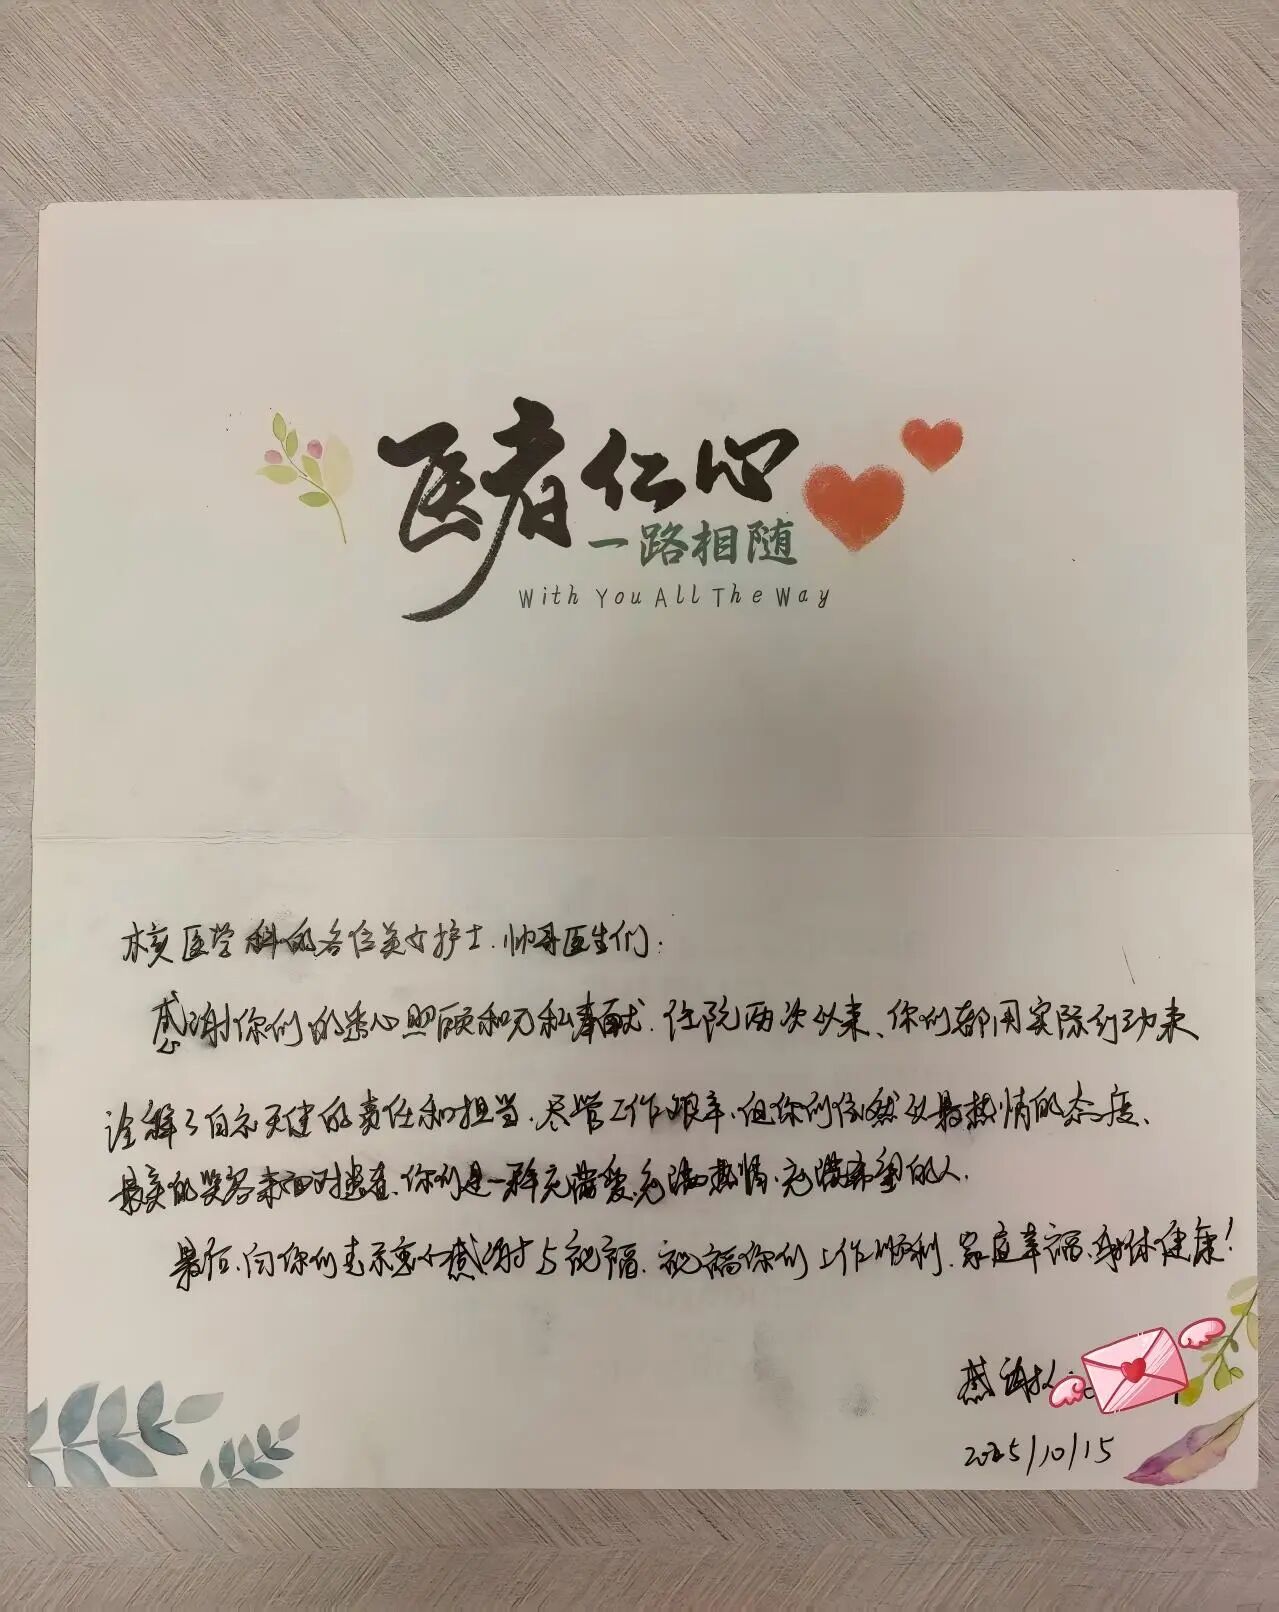 医者仁心
一路相随
With You All The Way
核医学科的各位美女护士、帅哥医生们：
感谢你们的悉心照顾和无私奉献。住院两次以来、你们都用实际行动来
诠释了白衣天使的责任和担当。尽管工作艰辛、但你们依然以最热情的态度、
最美的笑容来面对患者、你们是一群充满爱、充满热情、充满希望的人。
最后、向你们表示衷心感谢与祝福、祝福你们工作顺利、家庭幸福、身体健康！
感谢人：
2025/10/15